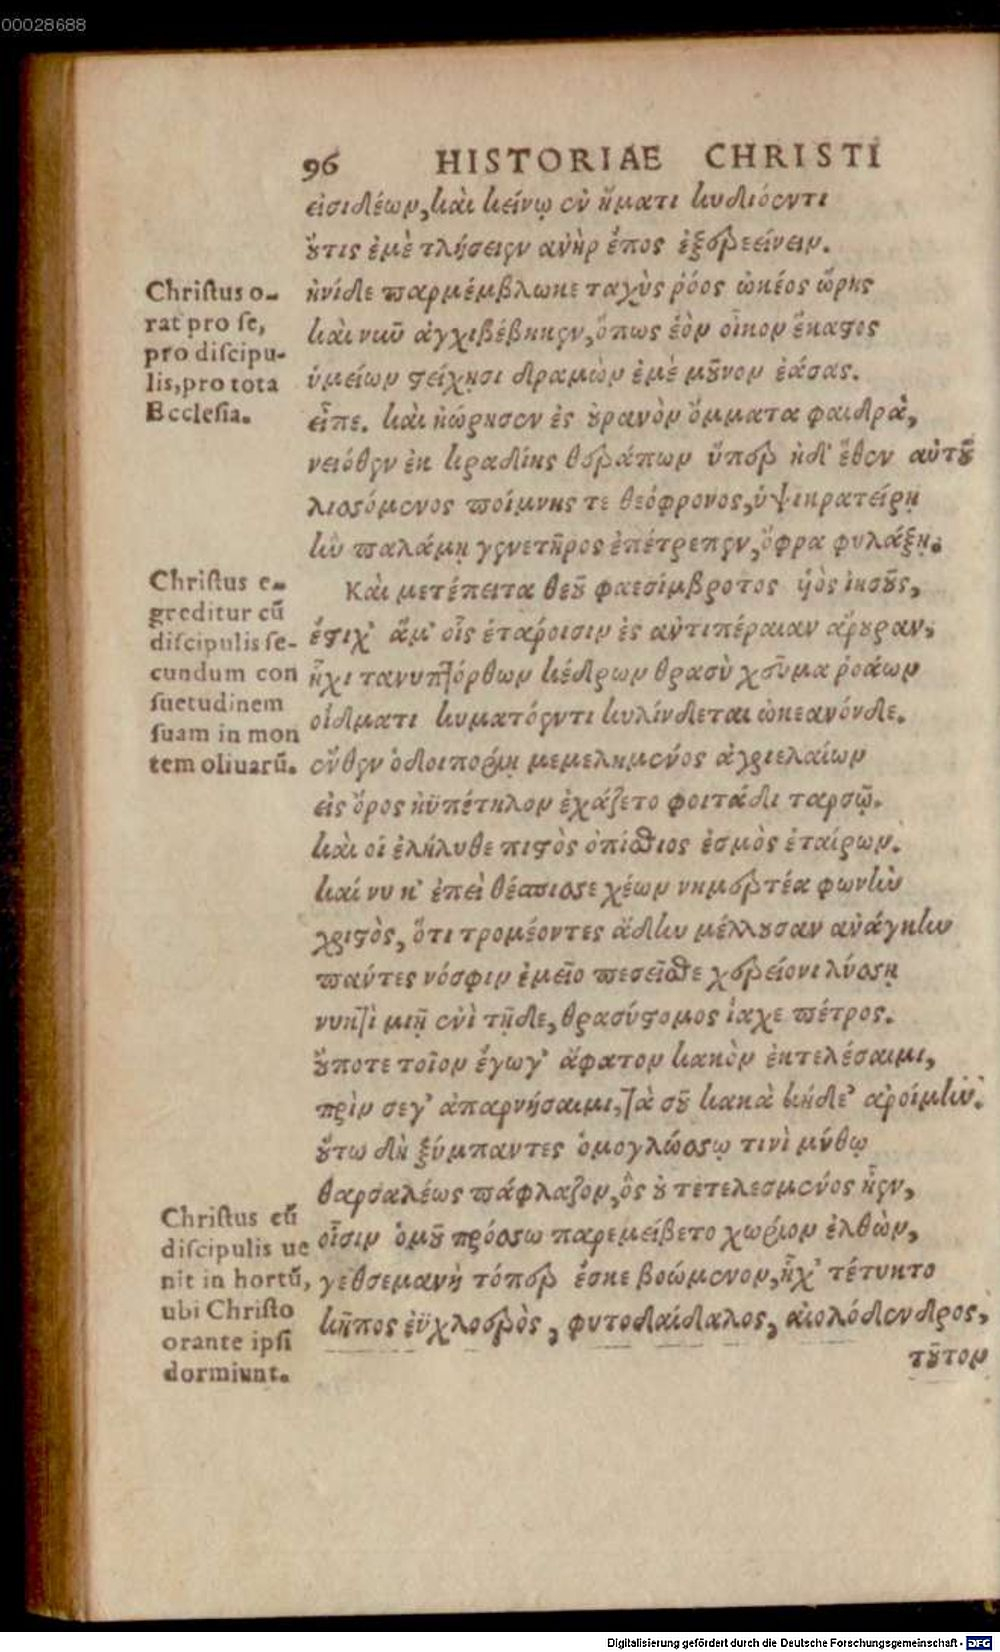 00028688
96 HISTORIAE CHRISTI
εἰσιδέων, καὶ κείνῳ ἐν ἤματι κυδιόεντι
οὔτις ἐμὲ τλήσειεν ἀνὴρ ἔπος ἐξερεείνειν.
Christus o-
rat pro se,
pro discipu-
lis, pro tota
Ecclesia.
ἠνίδε παρμέμβλωκε ταχὺς ῥόος ὠκέος ὥρης
καὶ νιῦ ἀγχιβέβηκεν, ὅπως ἑὸν οἶκον ἕκαστος
ὑμείων στείχησι δραμὼν ἐμὲ μοῦνον ἐάσας.
εἶπε. καὶ ἠώρησεν ἐς οὐρανὸν ὄμματα φαιδρὰ,
νειόθεν ἐκ κραδίης θεράπων ὕπερ ἠδ' ἕθεν αὐτοῦ
λισσόμενος ποίμνης τε θεόφρονος, ὑψικρατείρῃ
ἣν παλάμῃ γενετῆρος ἐπέτρεπεν, ὄφρα φυλάξῃ.
Christus e-
greditur cũ
discipulis se-
cundum con
suetudinem
suam in mon
tem olivarũ.
Καὶ μετέπειτα θεοῦ φαεσίμβροτος υἱὸς ἰησοῦς,
ἔστιχ' ἅμ' οἷς ἑτάροισιν ἐς ἀντιπέραιαν ἄρουραν,
ἧχι τανυπτόρθων κέδρων θρασὺ χεῦμα ῥοάων
οἴδματι κυματόεντι κυλίνδεται ὠκεανόνδε.
ἔνθεν ὁδοιπορίῃ μεμελημένος ἀγριελαίων
εἰς ὄρος ἠϋπέτηλον ἐχάζετο φοιτάδι ταρσῷ.
καὶ οἱ ἐλήλυθε πιστὸς ὀπίσθιος ἐσμὸς ἑταίρων.
καί νυ κ' ἐπεὶ θέσπισσε χέων νημερτέα φωνὴν
χριστὸς, ὅτι τρομέοντες ἄδην μέλλουσαν ἀνάγκην
πάντες νόσφιν ἐμεῖο πεσεῖσθε χερείονι λύσσῃ
νυκτὶ μιῇ ἐνὶ τῇδε, θρασύστομος ἴαχε πέτρος.
οὔποτε τοῖον ἔγωγ' ἄφατον κακὸν ἐκτελέσαιμι,
πρὶν σεγ' ἀπαρνήσαιμι, τὰ σοῦ κακὰ κήδε' ἀροίμην.
οὕτω δὴ ξύμπαντες ὁμογλώσσῳ τινὶ μύθῳ
θαρσαλέως πάφλαζον, ὃς οὐ τετελεσμένος ἦεν,
Christus cũ
discipulis ue
nit in hortũ,
ubi Christo
orante ipsi
dormiunt.
οἷσιν ὁμοῦ πρόσσω παρεμείβετο χωρίον ἐλθὼν,
γεθσεμανὴ τόπερ ἔσκε βοώμενον, ἧχ' τέτυκτο
κῆπος ἐΰχλοερὸς, φυτοδαίδαλος, αἰολόδενδρος,
τοῦτον
Digitalisierung gefördert durch die Deutsche Forschungsgemeinschaft - DFG